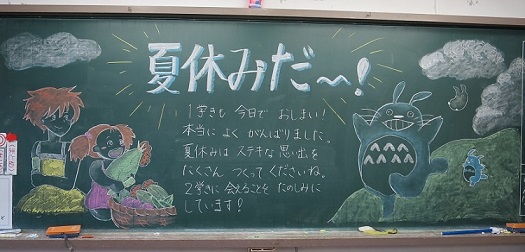 夏休みだ〜！
1学きも 今日で おしまい！
本当に よく がんばりました。
夏休みは ステキな 思い出を
たくさん つくって くださいね。
2学きに 会えることを たのしみに
しています！